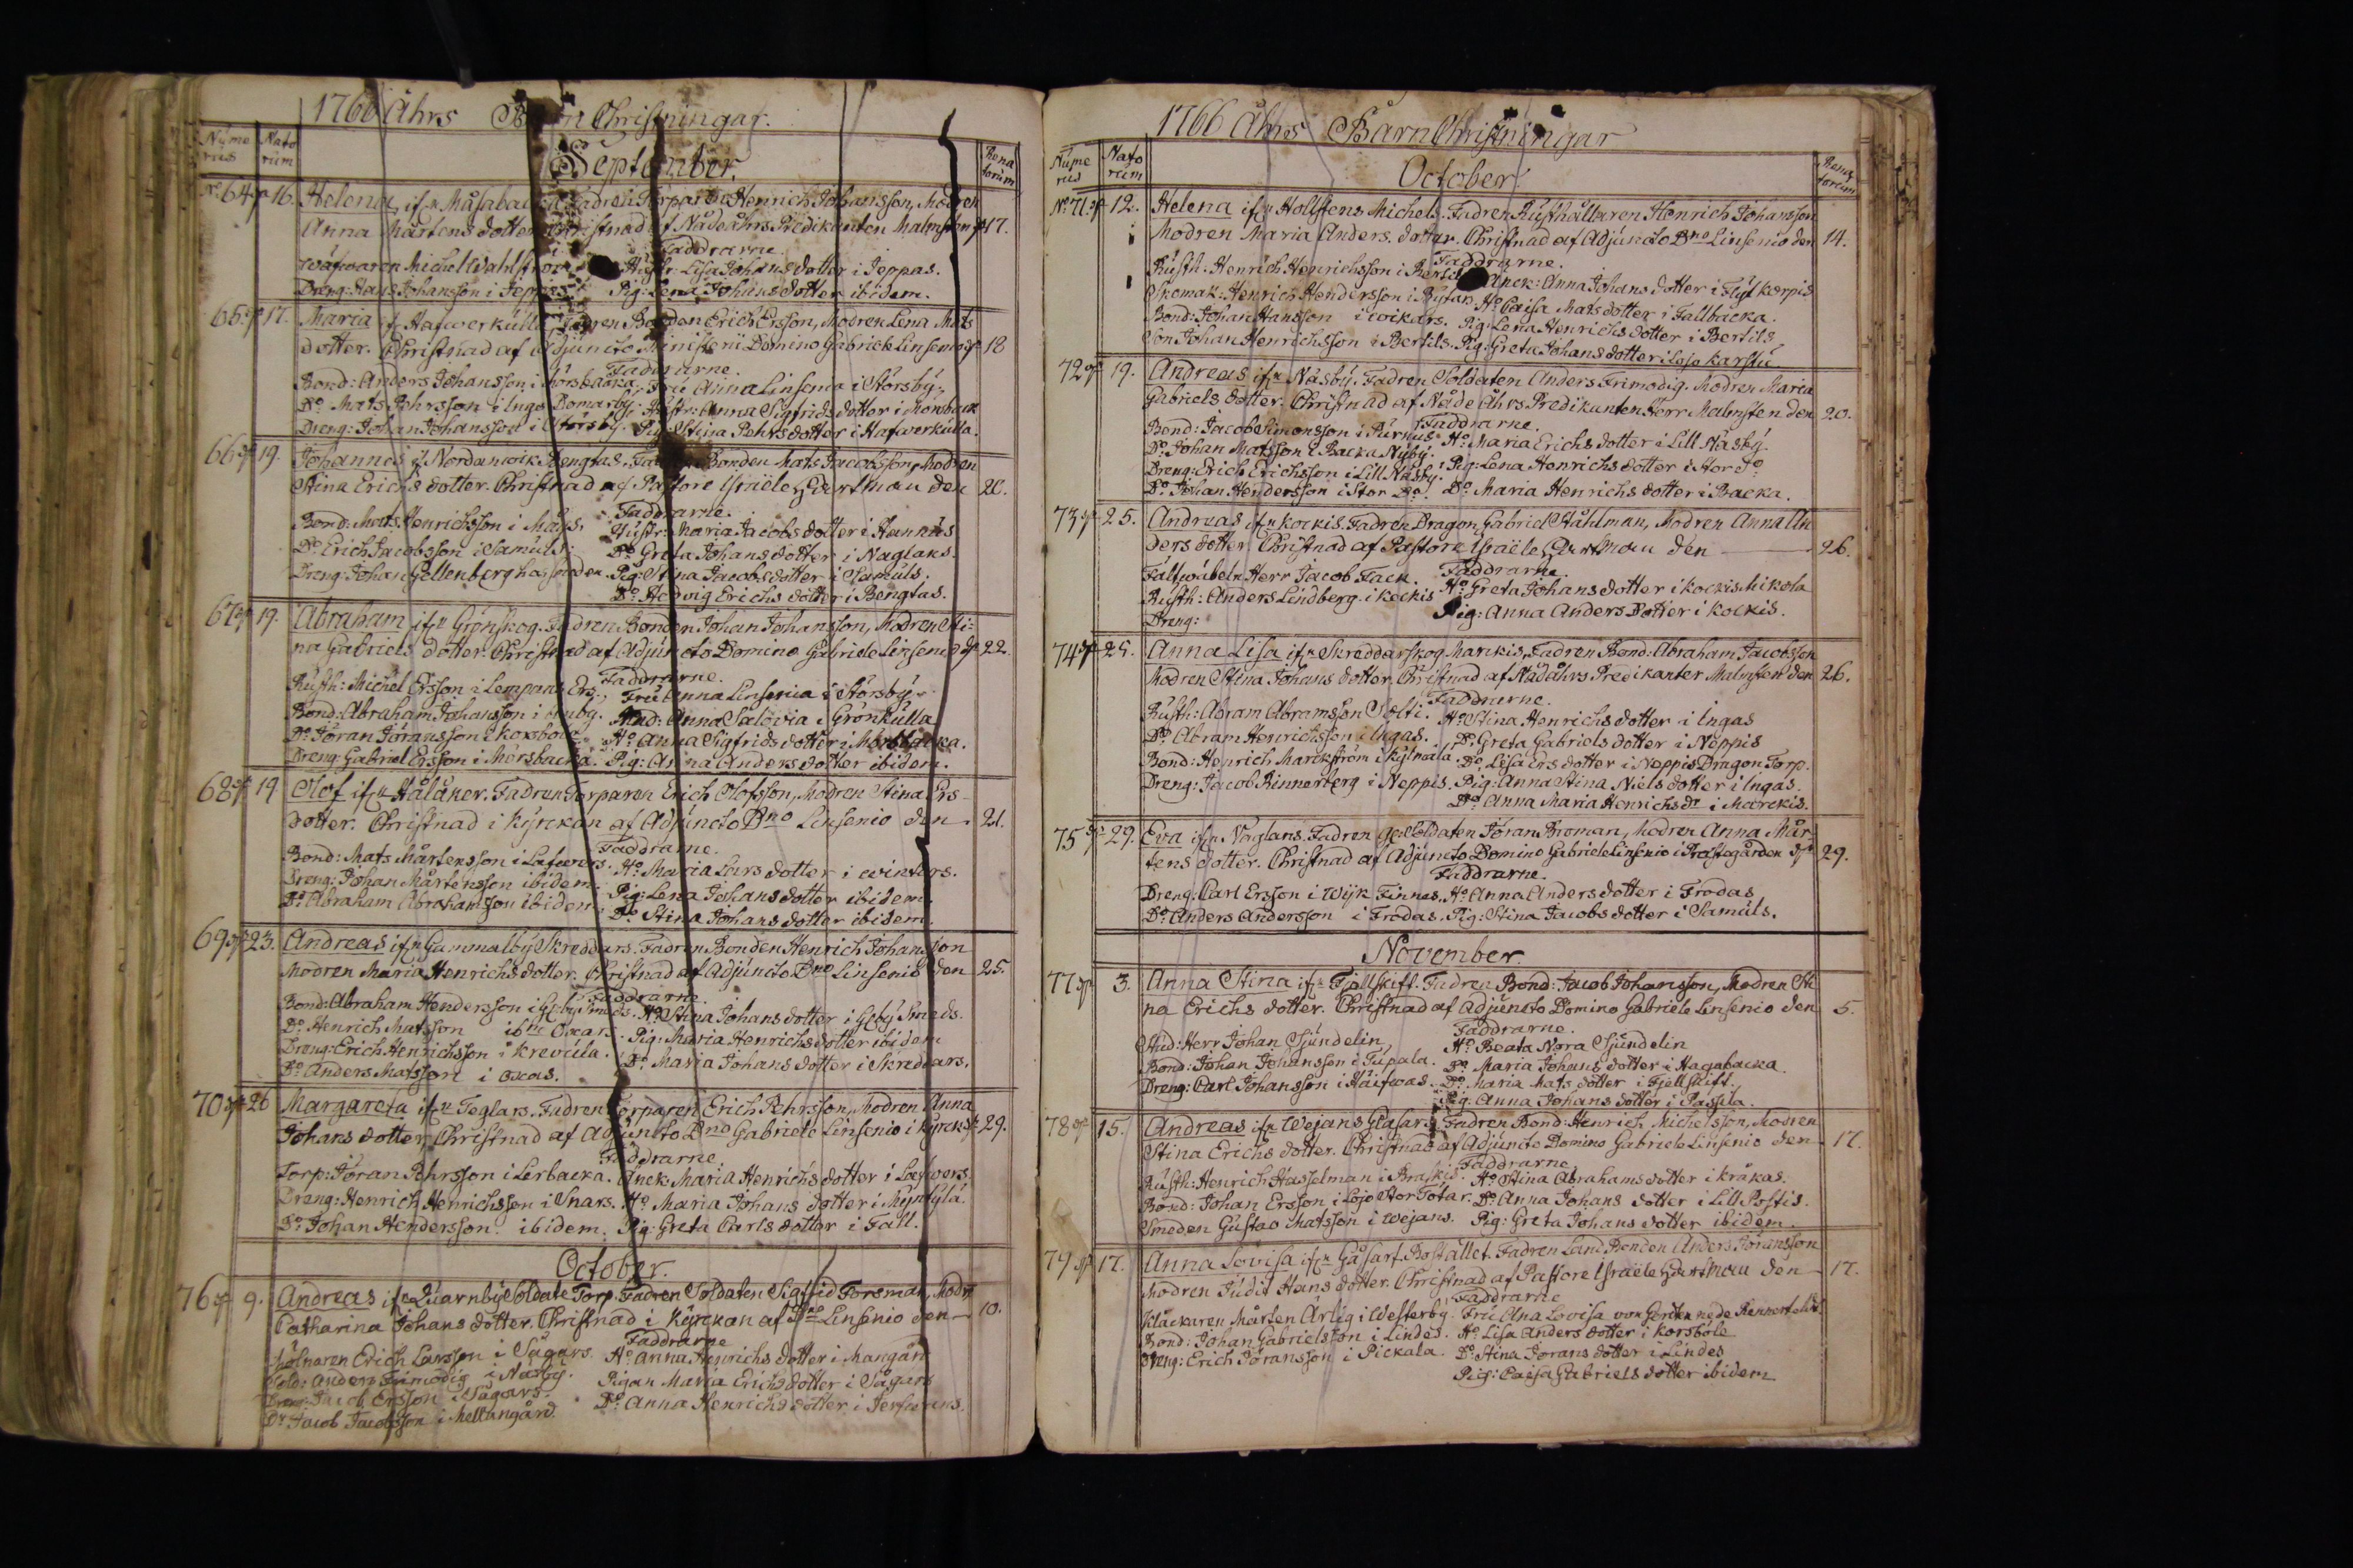 1766 Åhrs Barn Christningar.
Nume rus Nato rum Rena torum
September.
No 64 16. Helena, ifrn Måsabacka Fadren Torparen Henrich Johansson, Modren
Anna Mårtens dotter Christnad af Nådeåhrs Predikanten Malmsten 17.
Faddrarne
Michel Wahlström Hustr: Lisa Johans dotter i Jeppas.
Dreng: Hans Johansson i Jeppas Pig: Lena Johans dotter ibidem.
65. 17. Maria ifrn Hafwerkulla, Fadren Bonden Erich Ersson, Modren Lena Mats
dotter. Christnad af Adjuncto Ministerii Domino Gabriele Linsenio 18
Faddrarne.
Bond: Anders Johansson i Morsbacka, Fru Anna Linsenia i Störsby.
Do Mats Pehrsson i Ingo Bomarby. Hustr: Anna Sigfrids dotter i Morsback
Dreng: Johan Johansson i Störsby. Pig: Stina Pehrs dotter i Hafwerkulla.
66 19. Johannes ifrn Nordanwik Bengtas. Fadren Bonden Mats Jacobsson, Modren
Stina Erichs dotter. Christnad af Pastore Israële Hwartman den 20.
Faddrarne.
Bond: Mats Henrichsson i Måss. Hustr: Maria Jacobs dotter i Hannus
Do Erich Jacobsson i Samuls. Do Greta Johans dotter i Naglans.
Dreng: Johan Gellenberg Pig: Stina Jacobs dotter i Samuls.
Do Hedvig Erichs dotter i Bengtas.
67 19. Abraham ifrn Grönskog. Fadren Bonden Johan Johansson, Modren Sti-
na Gabriels dotter. Christnad af Adjuncto Domino Gabriele Linsenio 22.
Faddrarne.
Rusth: Michel Ersson i Lempans Fru Anna Linsenia i Störsby
Bond: Abraham Johansson i Anby. Mad: Anna Salovia i Grönkulla
Do Jöran Jöransson i Korsbole. Ho Anna Sigfrids dotter i Morsbacka.
Dreng: Gabriel Ersson i Morsbacka. Pig: Anna Anders dotter ibidem.
68 19 Olof ifrn Håläker. Fadren Torparen Erich Olofsson, Modren Stina Ers-
dotter. Christnad i Kyrckan af Adjuncto Dno Linsenio den 21.
Faddrarne.
Bond: Mats Mårtensson i Lafwers. Ho Maria Lars dotter i winters.
Dreng: Johan Mårtensson ibidem. Pig: Lena Johans dotter ibidem.
Do Abraham Abrahamsson ibidem. Do Stina Johans dotter ibidem.
69 23. Andreas ifrn Gammalby Skreddars. Fadren Bonden Henrich Johansson
Modren Maria Henrichs dotter. Christnad af Adjuncto Dno Linsenio den 25.
Faddrarne.
Bond: Abraham Hendersson i Geby Smeds. Ho Stina Johans dotter i Geby Smeds.
Do Henrich Matsson Oxars. Pig: Maria Henrichs dotter ibidem
Dreng: Erich Henrichsson i Krevula. Do Maria Johans dotter i Skreddars.
Do Anders Matsson i Oxas.
70 26 Margareta ifrn Teglars. Fadren Torparen Erich Pehrsson, Modren Anna
Johans dotter, Christnad af Adjuncto Dno Gabriele Linsenio i Kyrck: 29.
Faddrarne
Torp: Jöran Pehrsson i Lerbacka. Änck: Maria Henrichs dotter i Lafwers.
Dreng: Henrich Henrichsson i Snars. Ho Maria Johans dotter i Myntylä.
Do Johan Hendersson ibidem. Pig: Greta Carls dotter i Fall.
October.
76 9. Andreas ifrn Quarnby Soldate Torp. Fadren Soldaten Sigfrid Forsman, Modr
Catharina Johans dotter. Christnad i Kyrckan af Dno Linsenio den 10.
Faddrarne
Mölnaren Erich Larsson i Sågars. Ho Anna Henrichs dotter i Mangård
Sold: Anders Frimodig i Näsby. Pigan Maria Erichs dotter i Sågars
Dreng: Jacob Ersson i Sågars. Do Anna Henrichs dotter i
Do Jacob Jacobsson i Mellangård.
1766 Åhrs Barn Christningar
Nume rus Nato rum Rena torum
October.
No 71. 12. Helena ifrn Hollstens Michels. Fadren Rusthållaren Henrich Johansson
Modren Maria Anders dotter. Christnad af Adjuncto Dno Linsenio den 14.
Faddrarne.
Rusth. Henrich Henrichsson i Bertils Änck: Anna Johans dotter i
Skomak: Henrich Hendersson i Bytars Ho Caisa Mats dotter i Fallbacka.
Bond: Johan Hansson i wikars. Pig: Lena Henrichs dotter i Bertils
Son Johan Henrichsson i Bertils. Pig: Greta Johans dotter i Lojo Karstu
72 19. Andreas ifrn Näsby. Fadren Soldaten Anders Frimodig. Modren Maria
Gabriels dotter. Christnad af Nåde Åhrs Predikanten Herr Malmsten den 20.
Faddrarne
Bond: Jacob Simonsson i Purnus. Ho Maria Erichs dotter i Lill Näsby.
Do Johan Matsson i Backa Nyby. Pig: Lena Henrichs dotter i Stor Do
Dreng: Erich Erichsson i Lill Näsby.
Do Johan Hendersson i Stor Do. Do Maria Henrichs dotter i Backa.
73 25. Andreas ifrn Kockis. Fadren Dragon Gabriel Ståhlman, Modren Anna An
ders dotter Christnad af Pastore Israële Hwartman den 26.
Faltwäbeln Herr Jacob Fack. Faddrarne
Rusth: Anders Lindberg i kockis Ho Greta Johans dotter i kockis Mikola
Dreng: Pig: Anna Anders dotter i kockis.
74 25. Anna Lisa ifrn Skreddarskog Marckis, Fadren Bond: Abraham Jacobsson
Modren Stina Johans dotter, Christnad af Nådåhrs Predikanten Malmsten den 26.
Faddrarne.
Rusth: Abram Abramsson Solti. Ho Stina Henrichs dotter i Ingas
Do Abram Henrichsson i Ingas. Do Greta Gabriels dotter i Neppis
Bond: Henrich Marckström i Kylmälä. Do Lisa Ers dotter i Neppis Dragon Torp.
Dreng: Jacob Rinnerberg i Neppis. Pig: Anna Stina Niels dotter i Ingas.
Do Anna Maria Henrichs dr i Marckis.
75 29. Eva ifrn Naglans. Fadren Soldaten Jöran Broman, Modren Anna Mår-
tens dotter. Christnad af Adjuncto Domino Gabriele Linsenio i Prästegården 29.
Faddrarne.
Dreng: Carl Ersson i Wijk Finnas. Ho Anna Anders dotter i Frodas
Do Anders Andersson i Frodas. Pig: Stina Jacobs dotter i Samuls.
November.
77 3. Anna Stina ifrn Fjällskift. Fadren Bond: Jacob Johansson, Modren Sti
na Erichs dotter. Christnad af Adjuncto Domino Gabriele Linsenio den 5.
Faddrarne.
Stud: Herr Johan Sjundelin, Ho Beata Nora Sjundelin
Bond: Johan Johansson i Tupala. Do Maria Johans dotter i Hagabacka
Dreng: Carl Johansson i Do Maria Mats dotter i Fjellskift.
Pig: Anna Johans dotter i Passila.
78 15. Andreas ifrn Wejans Glasars. Fadren Bond: Henrich Michelsson, Modren
Stina Erichs dotter. Christnad af Adjuncto Domino Gabriele Linsenio den 17.
Faddrarne
Rusth: Henrich Hasselman i Braskis. Ho Stina Abrahams dotter i kråkas.
Bond: Johan Ersson i Lojo Stor Totar. Do Anna Johans dotter i Lill Postis.
Smeden Gustav Matsson i Wejans. Pig: Greta Johans dotter ibidem.
79 17. Anna Lovisa ifrn Gåsarf Bostället. Fadren Land Bonden Anders Jöransson
Modren Judit Hans dotter. Christnad af Pastore Israële Hwartman den 17.
Faddrarne
Klåckaren Mårten Ärlig i Westerby. Fru Ana Lovisa von
Bond: Johan Gabrielsson i Lindes. Ho Lisa Anders dotter i Korsbole
Dreng: Erich Jöransson i Pickala. Do Stina Jörans dotter i Lindes
Pig: Caisa Gabriels dotter ibidem